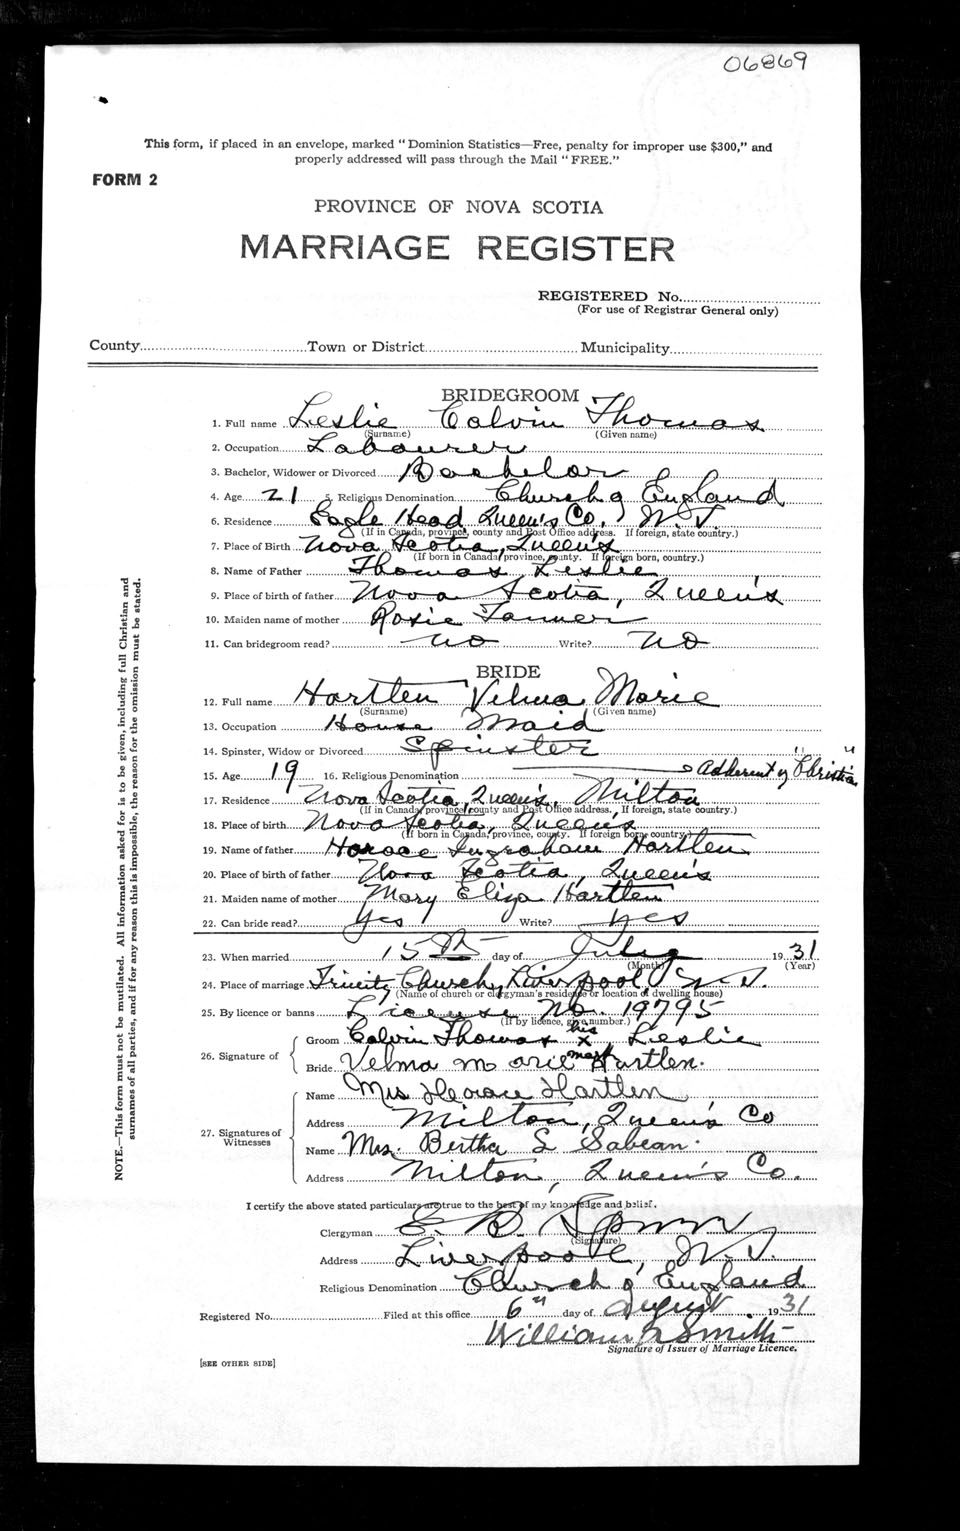 06869
This form, if placed in an envelope, marked "Dominion Statistics—Free, penalty for improper use $300," and
properly addressed will pass through the Mail "FREE."
FORM 2
PROVINCE OF NOVA SCOTIA
MARRIAGE REGISTER
REGISTERED No.
(For use of Registrar General only)
County Town or District Municipality
BRIDEGROOM
1. Full name Leslie Calvin Thomas
(Surname) (Given name)
2. Occupation Labourer
3. Bachelor, Widower or Divorced Bachelor
4. Age 21 5. Religious Denomination Church of England
6. Residence Eagle Head Queen's Co, N.S.
(If in Canada, province, county and Post Office address. If foreign, state country.)
7. Place of Birth Nova Scotia, Queen's
(If born in Canada, province, county. If foreign born, country.)
8. Name of Father Thomas Leslie
9. Place of birth of father Nova Scotia, Queen's
10. Maiden name of mother Rosie Tanner
11. Can bridegroom read? no Write? no
BRIDE
12. Full name Hartlen Velma Marie
(Surname) (Given name)
13. Occupation House Maid
14. Spinster, Widow or Divorced Spinster
15. Age 19 16. Religious Denomination Adherent of "Christian"
17. Residence Nova Scotia, Queen's, Milton
(If in Canada, province, county and Post Office address. If foreign, state country.)
18. Place of birth Nova Scotia, Queen's
(If born in Canada, province, county. If foreign born, country.)
19. Name of father Horace Ingraham Hartlen
20. Place of birth of father Nova Scotia, Queen's
21. Maiden name of mother Mary Eliza Hartlen
22. Can bride read? yes Write? yes
23. When married 15th day of July 1931
(Month) (Year)
24. Place of marriage Trinity Church, Liverpool N.S.
(Name of church or clergyman's residence or location of dwelling house)
25. By licence or banns License No. 19795
(If by licence, give number.)
26. Signature of
Groom Calvin Thomas his x mark Leslie
Bride Velma Marie Hartlen.
27. Signatures of Witnesses
Name Mrs Horace Hartlen
Address Milton, Queen's Co
Name Mrs. Bertha L Sabean.
Address Milton, Queen's Co.
I certify the above stated particulars are true to the best of my knowledge and belief.
Clergyman E. B. Spurr
(Signature)
Address Liverpool, N.S.
Religious Denomination Church of England
Registered No. Filed at this office 6th day of August 1931
William Smith
Signature of Issuer of Marriage Licence.
[SEE OTHER SIDE]
NOTE.—This form must not be mutilated. All information asked for is to be given, including full Christian and
surnames of all parties, and if for any reason this is impossible, the reason for the omission must be stated.